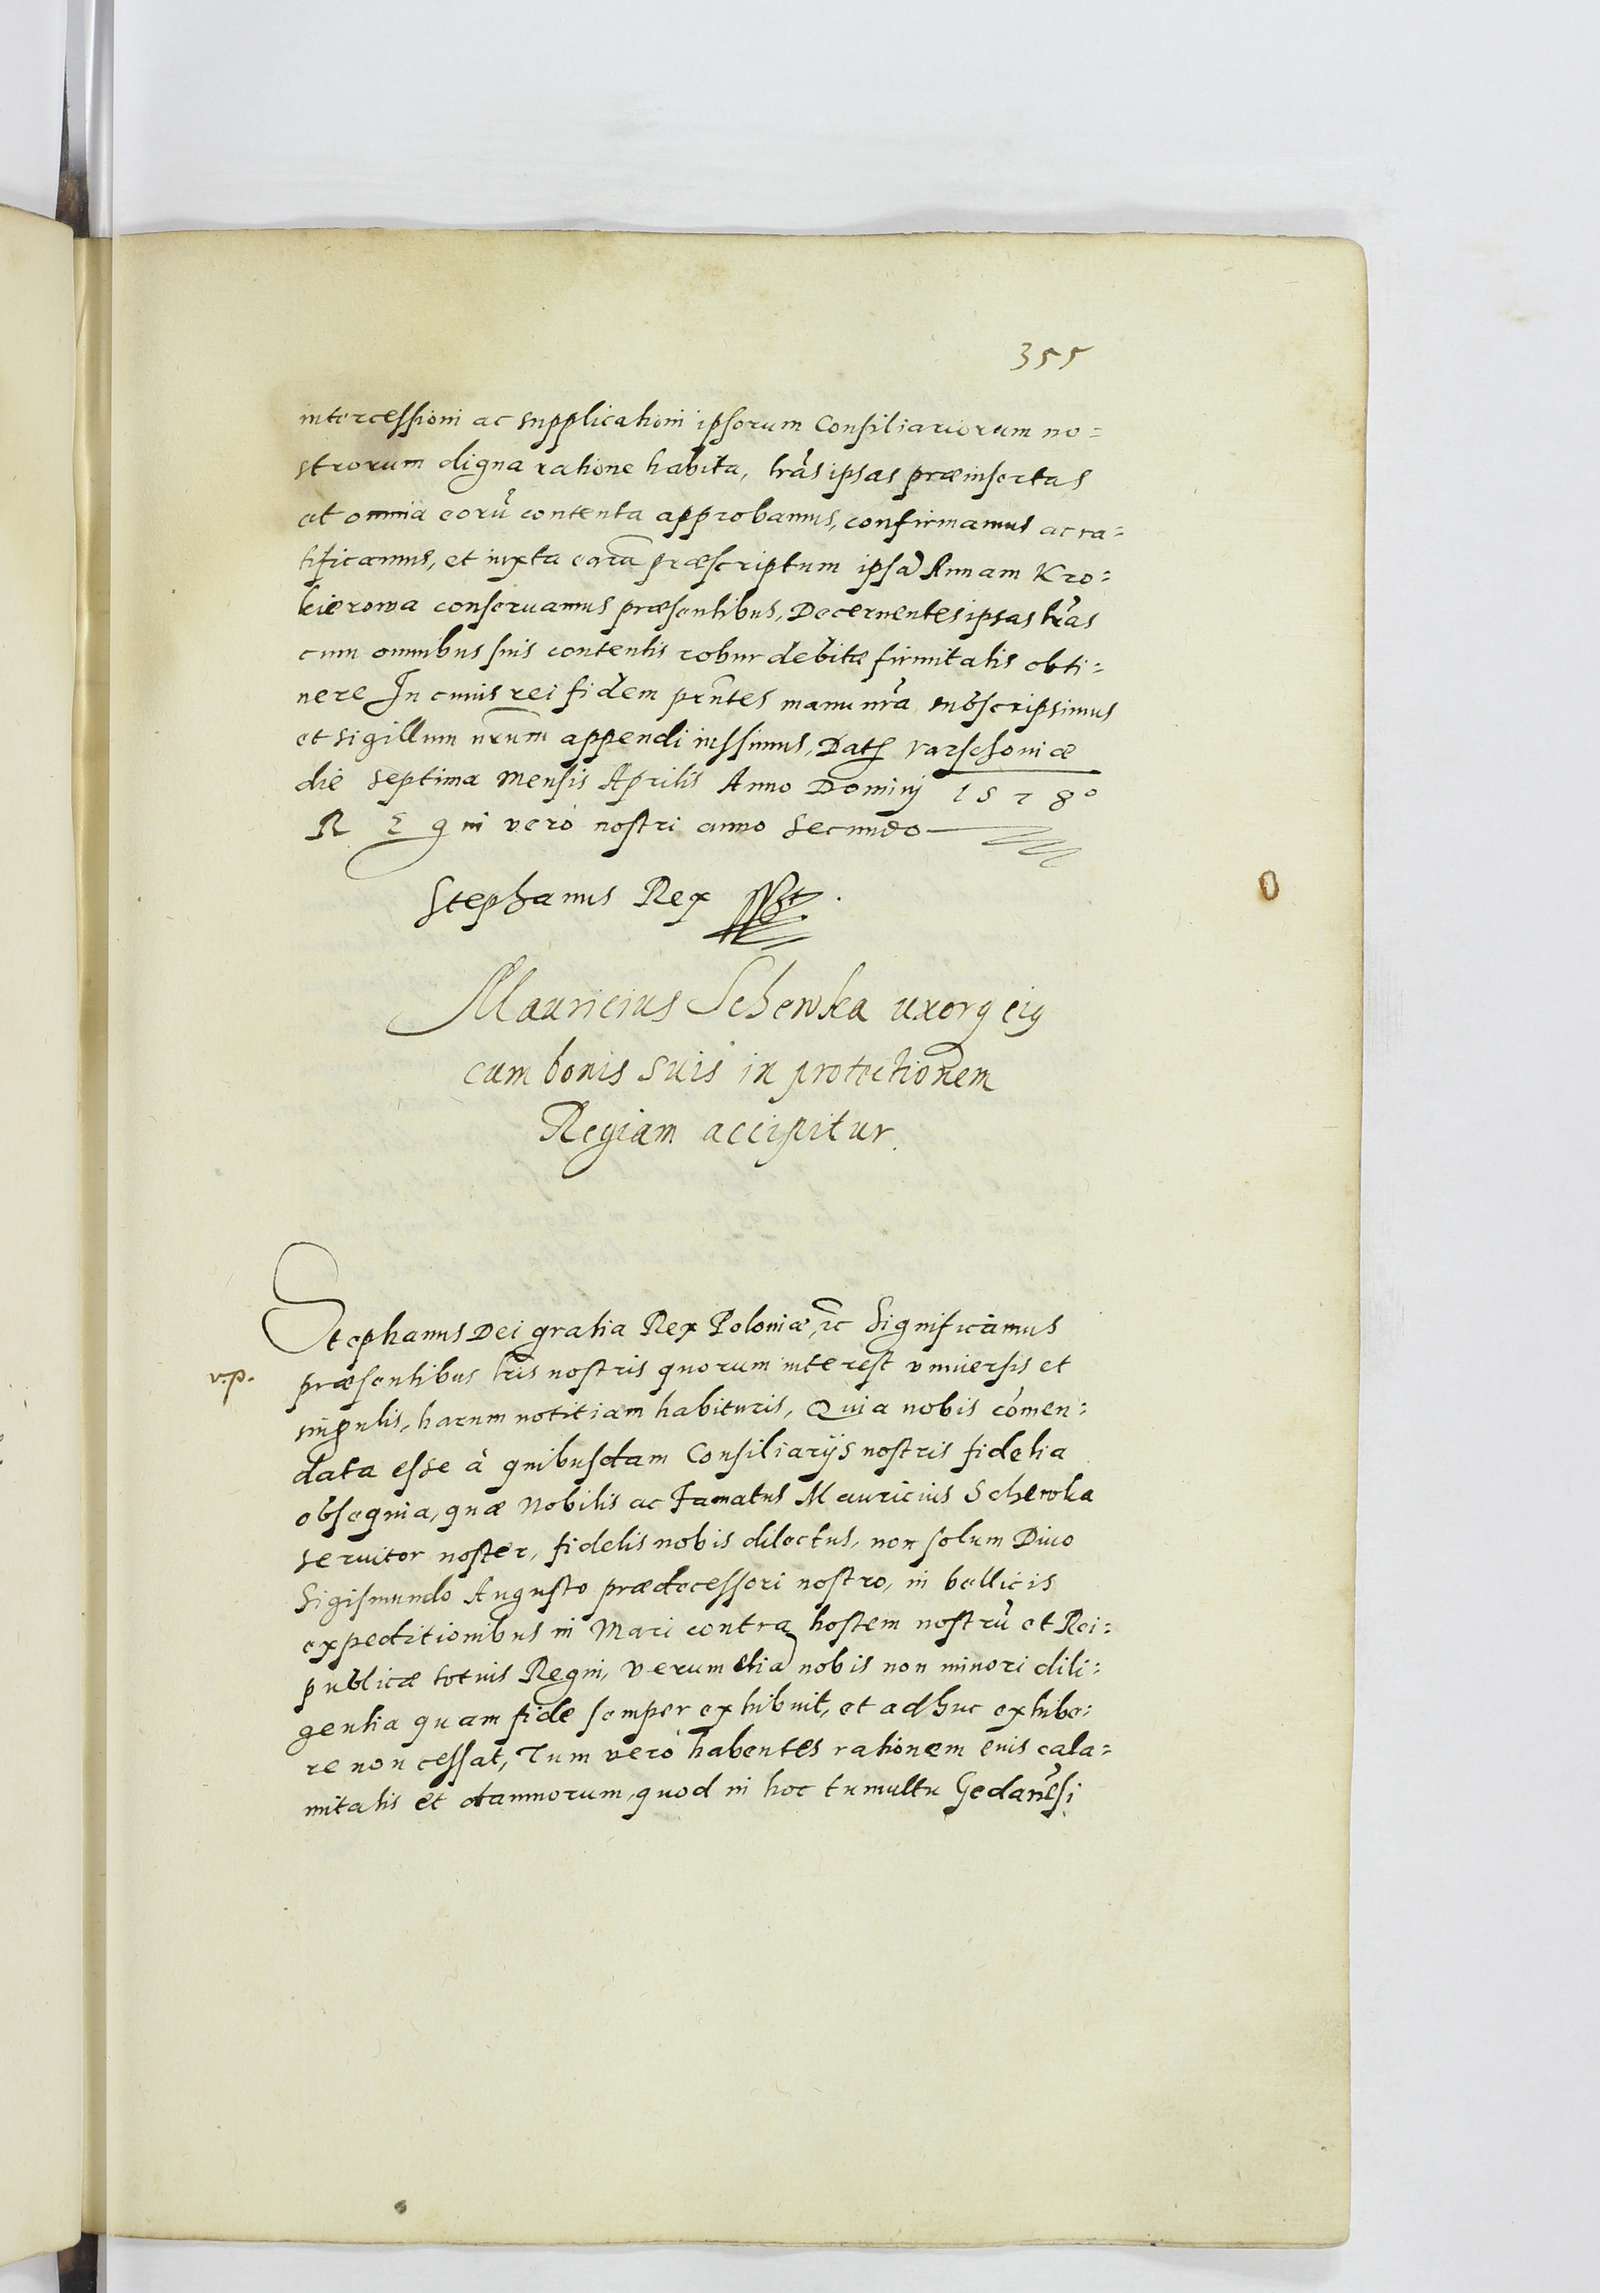 355
intercessioni ac supplicationi ipsorum Consiliariorum no=
strorum digna ratione habita, lrãs ipsas præinsertas
et omnia eorũ contenta approbamus, confirmamus ac ra=
tificamus, et iuxta earũ præscriptum ipsã Annam Kro=
kierowa conseruamus præsentibus, Decernentes ipsas lrãs
cum omnibus suis contentis robur debitæ firmitatis obti=
nere In cuius rei fidem prñtes manu nrã subscripsimus
et sigillum nrũm appendi iussimus, Datꝭ Varschoniæ
die septima mensis Aprilis Anno Dominij 1578º
REgni verò nostri anno secundo
Stephanus Rex
Mauricius Schewka uxorq eiꝯ
cum bonis suis in protectionem
Regiam accipitur.
Stephanus Dei gratia Rex Poloniæ, ꝛc Significamus
v.p.
præsentibus lrĩs nostris quorum interest vniuersis et
singulis, harum notitiam habituris, Quia nobis cõmen=
data esse à quibusdam Consiliarijs nostris fidelia
obsequia, quæ Nobilis ac Famatus Mauricius Schewka
seruitor noster, fidelis nobis dilectus, non solum Diuo
Sigismundo Augusto prædecessori nostro, in bellicis
expeditionibus in Mari contra hostem nostrũ et Rei=
publicæ totius Regni, verum etiã nobis non minori dili=
gentia quam fide semper exhibuit, et adhuc exhibe=
re non cessat, Tum verò habentes rationem eius cala=
mitatis et damnorum, quod in hoc tumultu Gedanẽsi